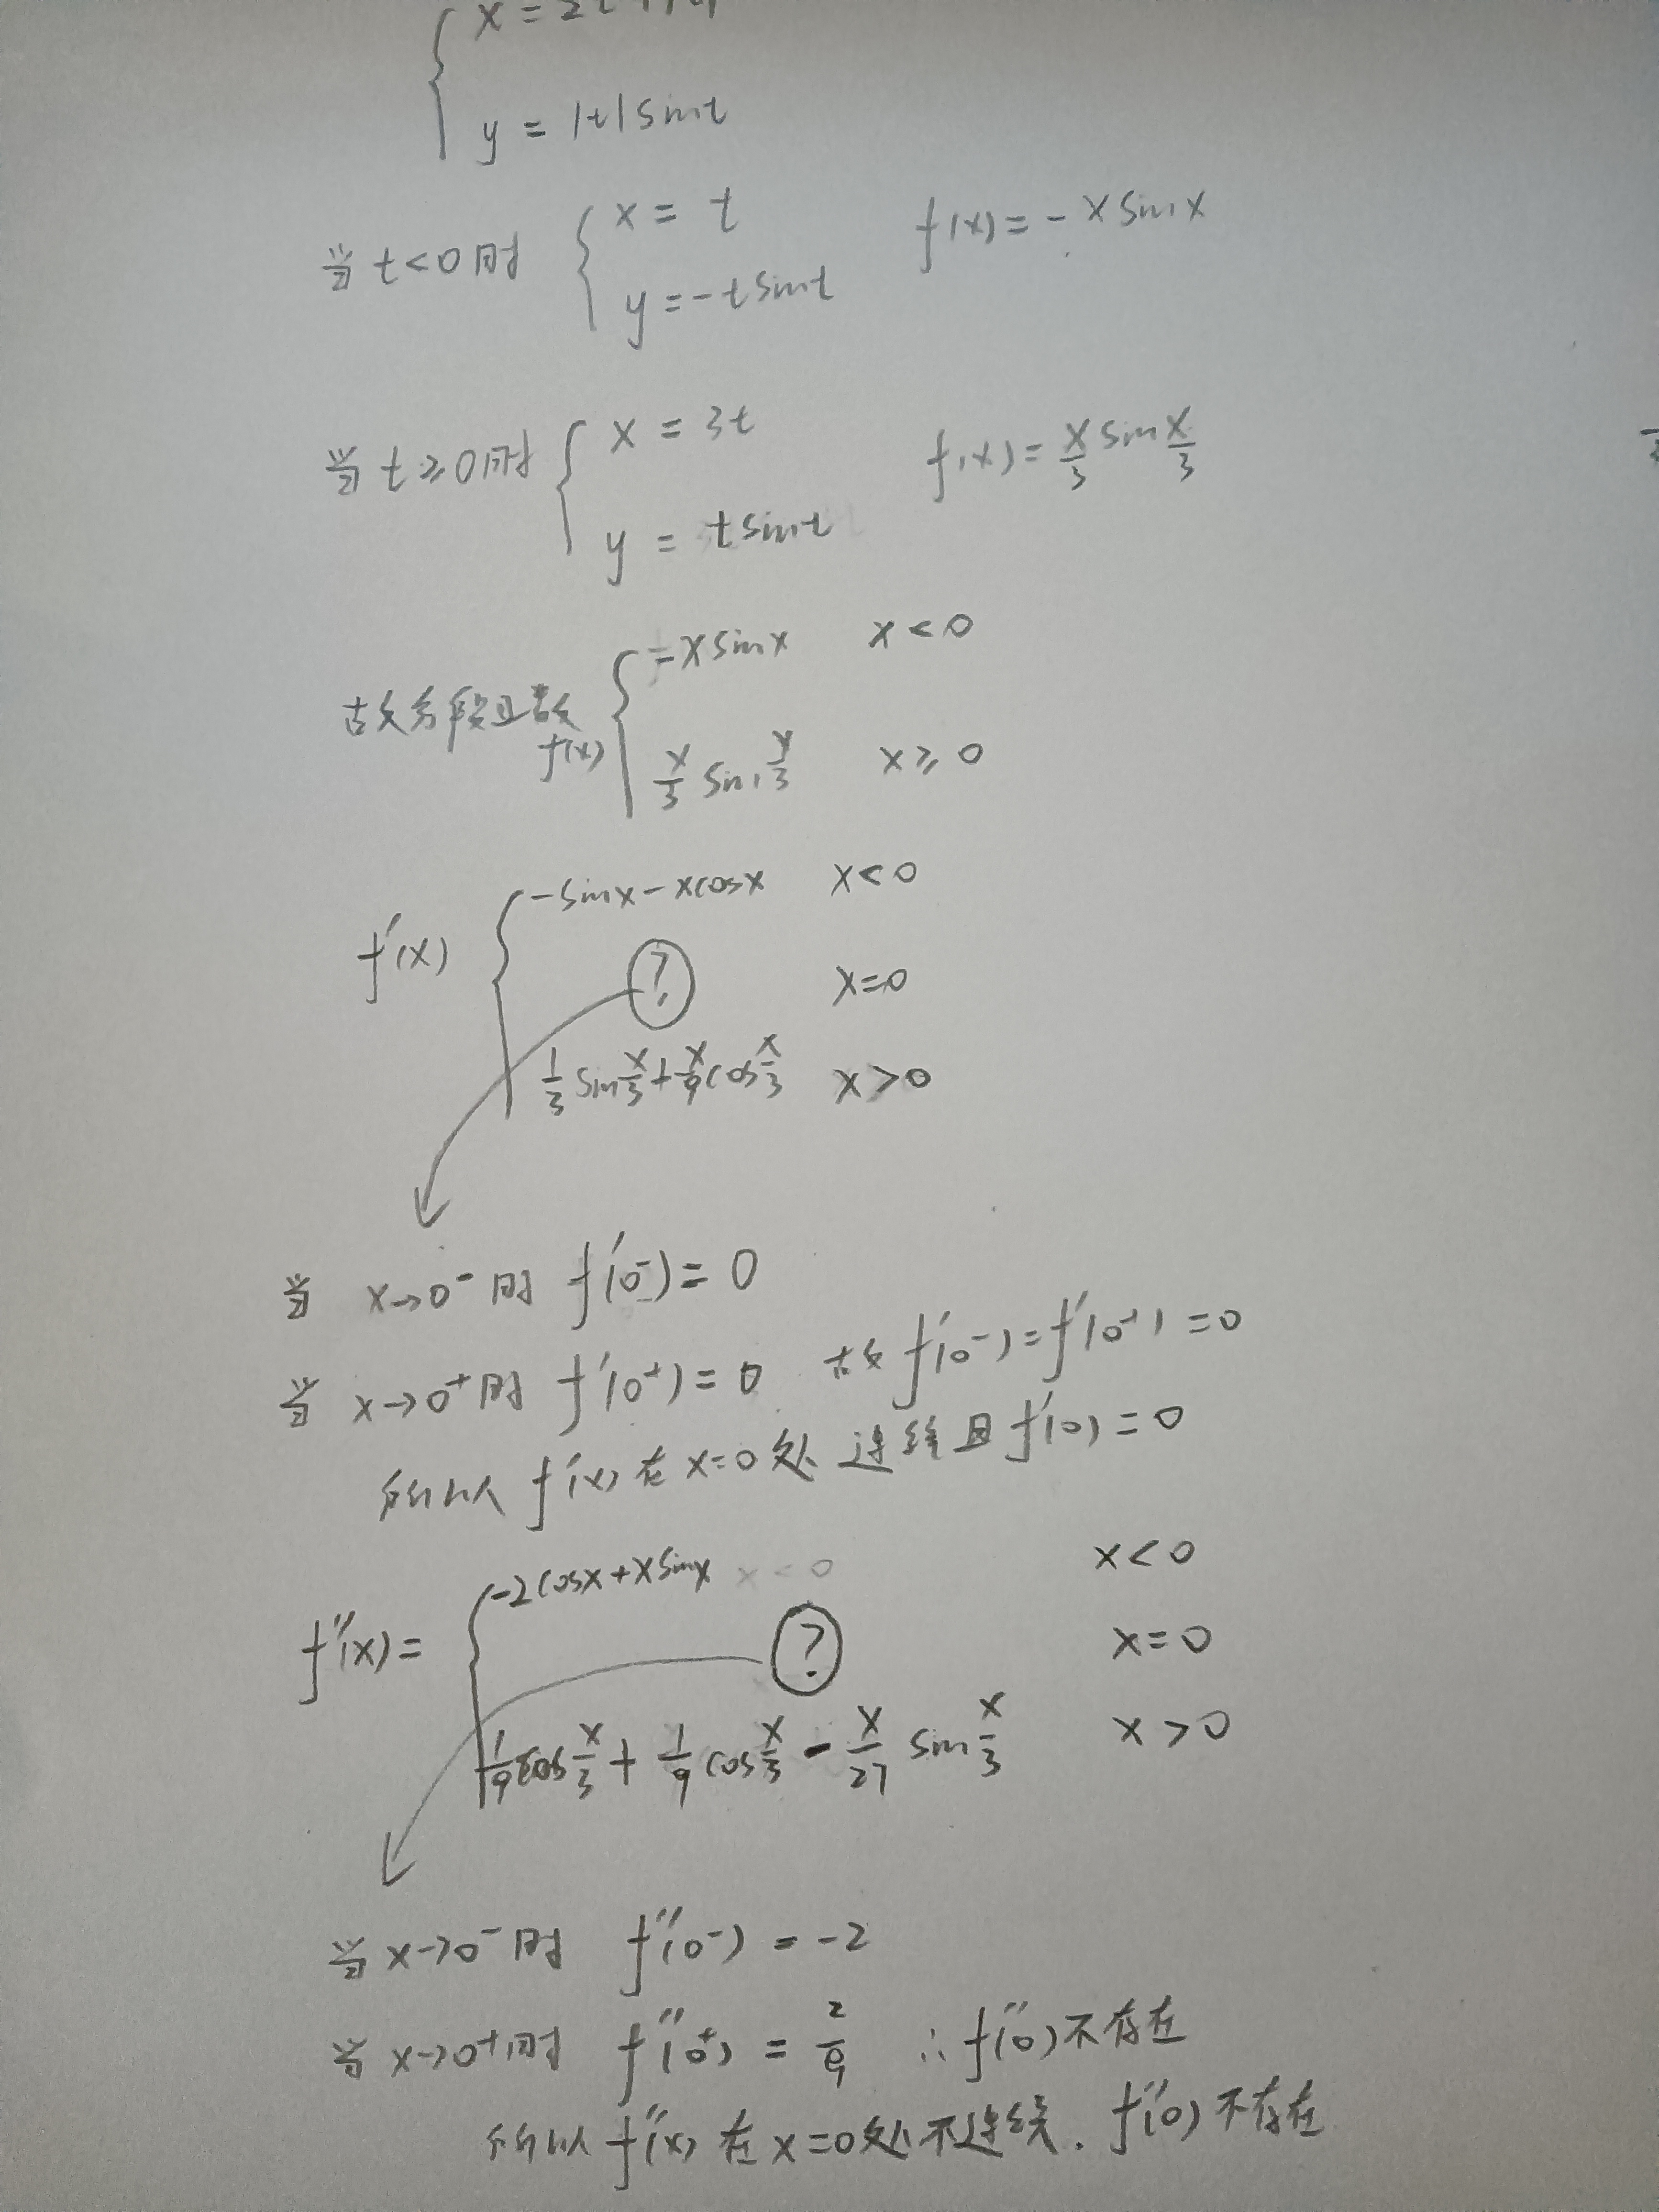 x = 2t
y = |t|sint
当t<0时 { x = t f(x) = -xsinx
y = -tsint
当t≥0时 { x = 3t f(x) = x/3 sin x/3
y = tsint
故分段函数 f(x) { -xsinx x<0
x/3 sin x/3 x≥0
f'(x) { -sinx-xcosx x<0
? x=0
1/3 sin x/3 + x/9 cos x/3 x>0
当 x→0⁻时 f'(0⁻) = 0
当 x→0⁺时 f'(0⁺) = 0 故f'(0⁻) = f'(0⁺) = 0
所以 f'(x)在x=0处连续且f'(0) = 0
f''(x) = { -2cosx+xsinx x<0 x<0
? x=0
1/9 cos x/3 + 1/9 cos x/3 - x/27 sin x/3 x>0
当x→0⁻时 f''(0⁻) = -2
当x→0⁺时 f''(0⁺) = 2/9 ∴f''(0)不存在
所以 f''(x)在x=0处不连续. f''(0)不存在